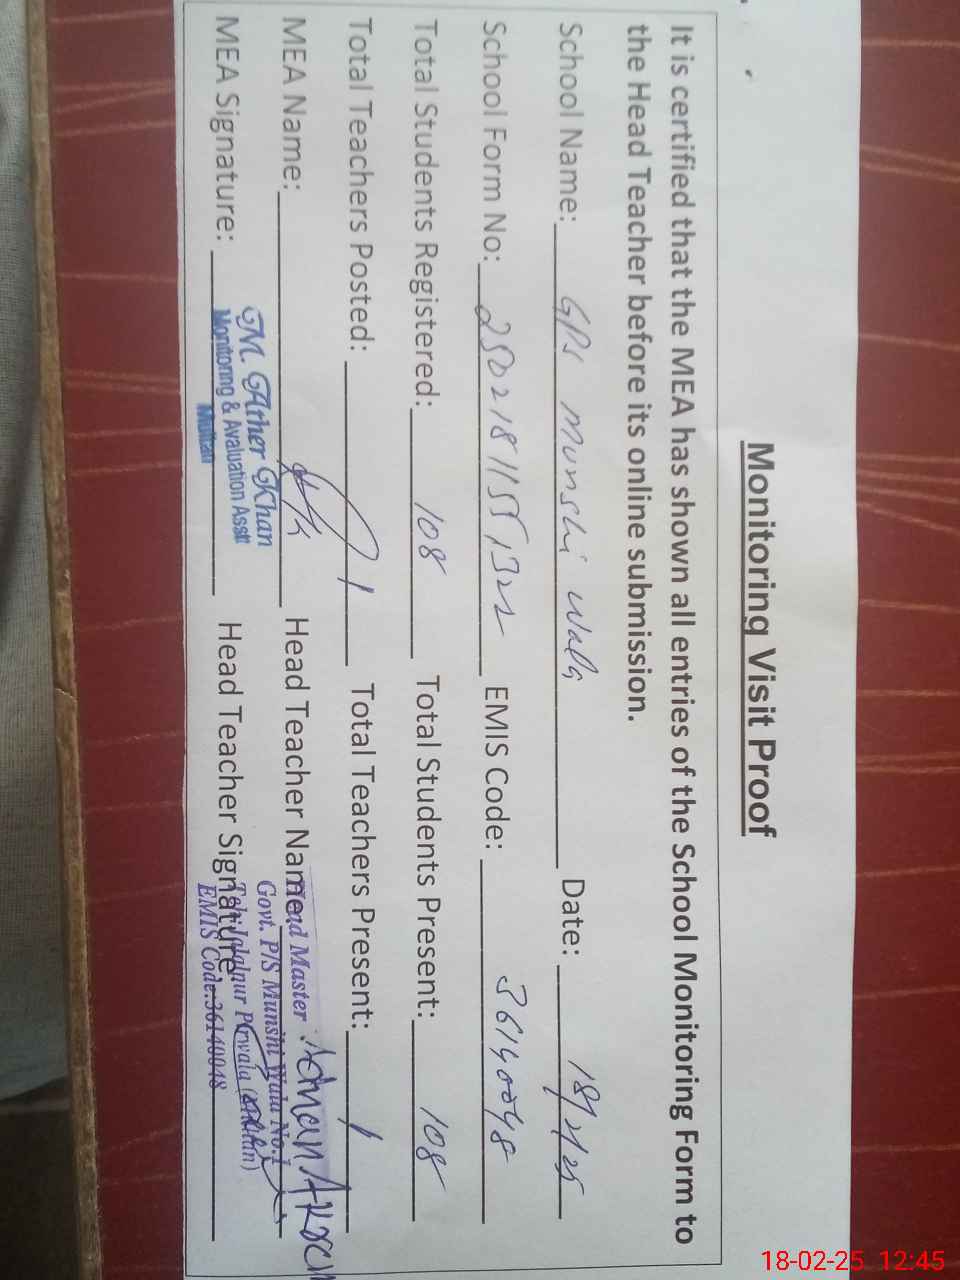 Monitoring Visit Proof
It is certified that the MEA has shown all entries of the School Monitoring Form to
the Head Teacher before its online submission.
School Name: GPS Munshi Wala Date: 18/2/25
School Form No: EMIS Code: 36140048
Total Students Registered: 108 Total Students Present: 108
Total Teachers Posted: 1 Total Teachers Present: 1
MEA Name: Head Teacher Name:
MEA Signature: Head Teacher Signature
M. Ather Khan
Monitoring & Avaluation Asstt
Multan
Head Master
Govt. P/S Munshi Wala No.1
Teh: Jalalpur Pirwala (Multan)
EMIS Code:36140048
18-02-25 12:45